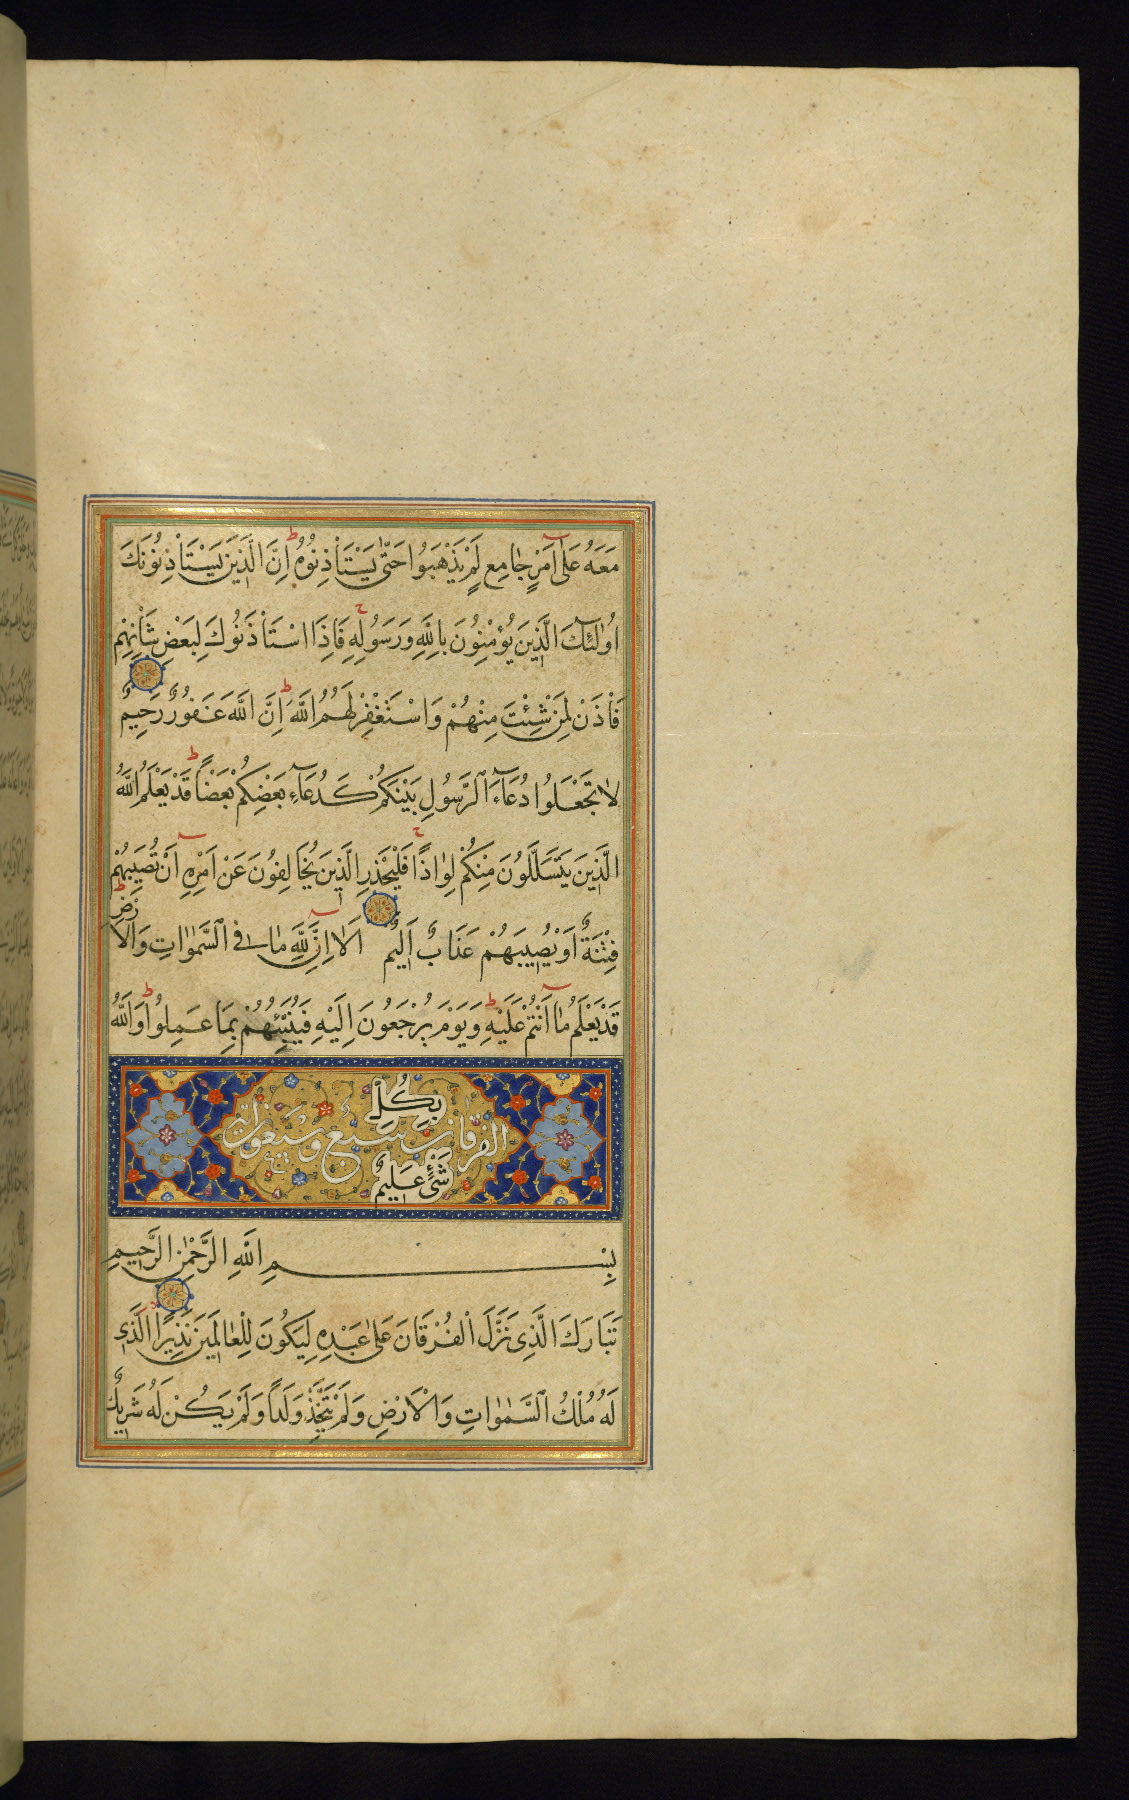 مَعَهُ عَلٰٓى اَمْرٍ جٰامِعٍ لَمْ يَذْهَبُوا حَتّٰى يَسْتَأْذِنُوهُ ط اِنَّ الَّذِينَ يَسْتَأْذِنُونَكَ
اُولٰٓئِكَ الَّذِينَ يُؤْمِنُونَ بِاللّٰهِ وَرَسُولِهِ ج فَاِذَا اسْتَأْذَنُوكَ لِبَعْضِ شَأْنِهِمْ
فَأْذَنْ لِمَنْ شِئْتَ مِنْهُمْ وَاسْتَغْفِرْ لَهُمُ اللّٰهَ ط اِنَّ اللّٰهَ غَفُورٌ رَحِيمٌ
لٰا تَجْعَلُوا دُعَآءَ الرَّسُولِ بَيْنَكُمْ كَدُعَآءِ بَعْضِكُمْ بَعْضًا ط قَدْ يَعْلَمُ اللّٰهُ
الَّذِينَ يَتَسَلَّلُونَ مِنْكُمْ لِوٰاذًا ج فَلْيَحْذَرِ الَّذِينَ يُخَالِفُونَ عَنْ اَمْرِهِ اَنْ تُصِيبَهُمْ
فِتْنَةٌ اَوْ يُصِيبَهُمْ عَذَابٌ اَلِيمٌ اَلٰٓا اِنَّ لِلّٰهِ مٰا فِى السَّمٰوٰاتِ وَالْاَرْضِ ط
قَدْ يَعْلَمُ مٰٓا اَنْتُمْ عَلَيْهِ ط وَيَوْمَ يُرْجَعُونَ اِلَيْهِ فَيُنَبِّئُهُمْ بِمَا عَمِلُوا ط وَاللّٰهُ
بِكُلِّ
الفرقان سبع وسبعون
شَىْءٍ عَلِيمٌ
بِسْمِ اللّٰهِ الرَّحْمٰنِ الرَّحِيمِ
تَبَارَكَ الَّذِى نَزَّلَ الْفُرْقَانَ عَلٰى عَبْدِهِ لِيَكُونَ لِلْعٰالَمِينَ نَذِيرًا الَّذِى
لَهُ مُلْكُ السَّمٰوٰاتِ وَالْاَرْضِ وَلَمْ يَتَّخِذْ وَلَدًا وَلَمْ يَكُنْ لَهُ شَرِيكٌ